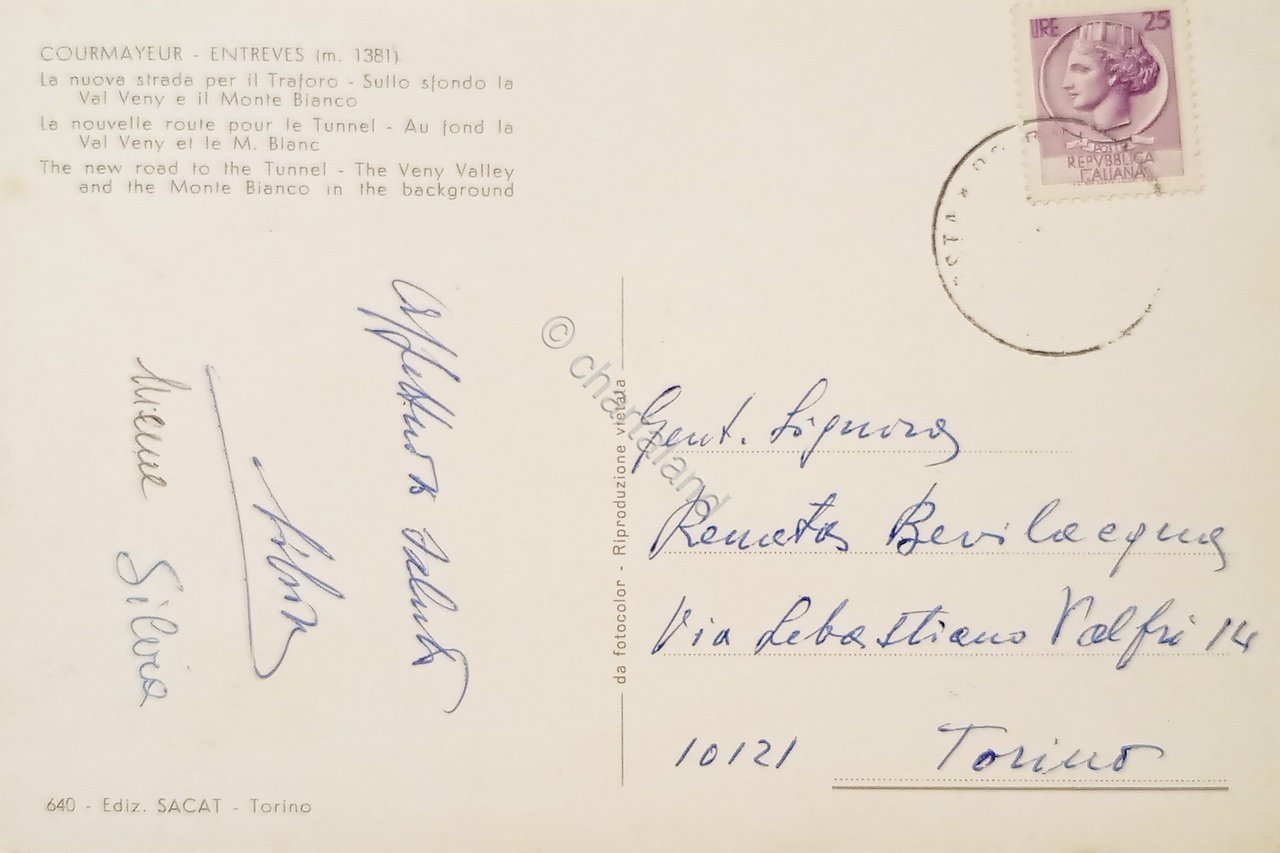 COURMAYEUR - ENTREVES (m. 1381)
La nuova strada per il Traforo - Sullo sfondo la
Val Veny e il Monte Bianco
La nouvelle route pour le Tunnel - Au fond la
Val Veny et le M. Blanc
The new road to the Tunnel - The Veny Valley
and the Monte Bianco in the background
LIRE 25
POSTE
REPVBBLICA
ITALIANA
Affettuosi Saluti
Silvia
da fotocolor - Riproduzione vietata
© chartaland
Gent. Signora
Renata Bevilacqua
Via Sebastiano Valfrè 14
10121 Torino
640 - Ediz. SACAT - Torino